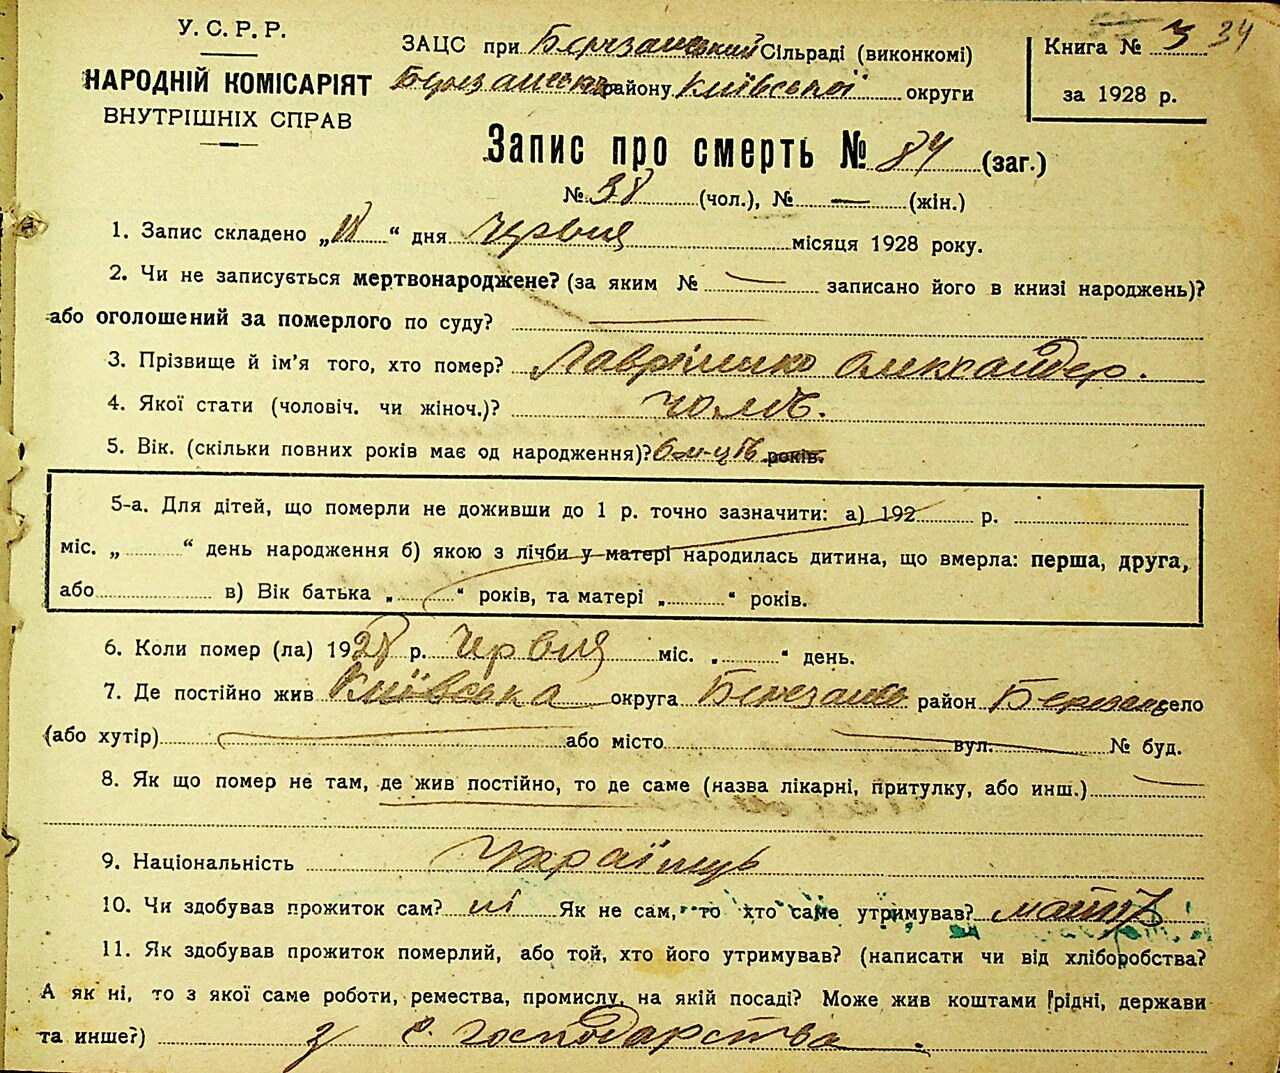 34
У. С. Р. Р.
НАРОДНІЙ КОМІСАРІЯТ
ВНУТРІШНІХ СПРАВ
ЗАЦС при Березанський Сільраді (виконкомі)
району Київської округи
Книга № 3
за 1928 р.
Запис про смерть № 84 (заг.)
№ 38 (чол.), № — (жін.)
1. Запис складено „18“ дня Червня місяця 1928 року.
2. Чи не записується мертвонароджене? (за яким № — записано його в книзі народжень)?
або оголошений за померлого по суду? —
3. Прізвище й ім'я того, хто помер? Олександер.
4. Якої статі (чоловіч. чи жіноч.)?
5. Вік. (скільки повних років має од народження)? 6 м-ців років.
5-а. Для дітей, що померли не доживши до 1 р. точно зазначити: а) 192 р.
міс. „ “ день народження б) якою з лічби у матері народилась дитина, що вмерла: перша, друга,
або в) Вік батька „ “ років, та матері „ “ років.
6. Коли помер (ла) 1928 р. Червня міс. „ “ день.
7. Де постійно жив Київська округа район село
(або хутір) або місто вул. № буд.
8. Як що помер не там, де жив постійно, то де саме (назва лікарні, притулку, або инш.) —
9. Національність Українець
10. Чи здобував прожиток сам? ні Як не сам, то хто саме утримував?
11. Як здобував прожиток померлий, або той, хто його утримував? (написати чи від хліборобства?
А як ні, то з якої саме роботи, ремества, промислу, на якій посаді? Може жив коштами рідні, держави
та инше?) з с. господарства.